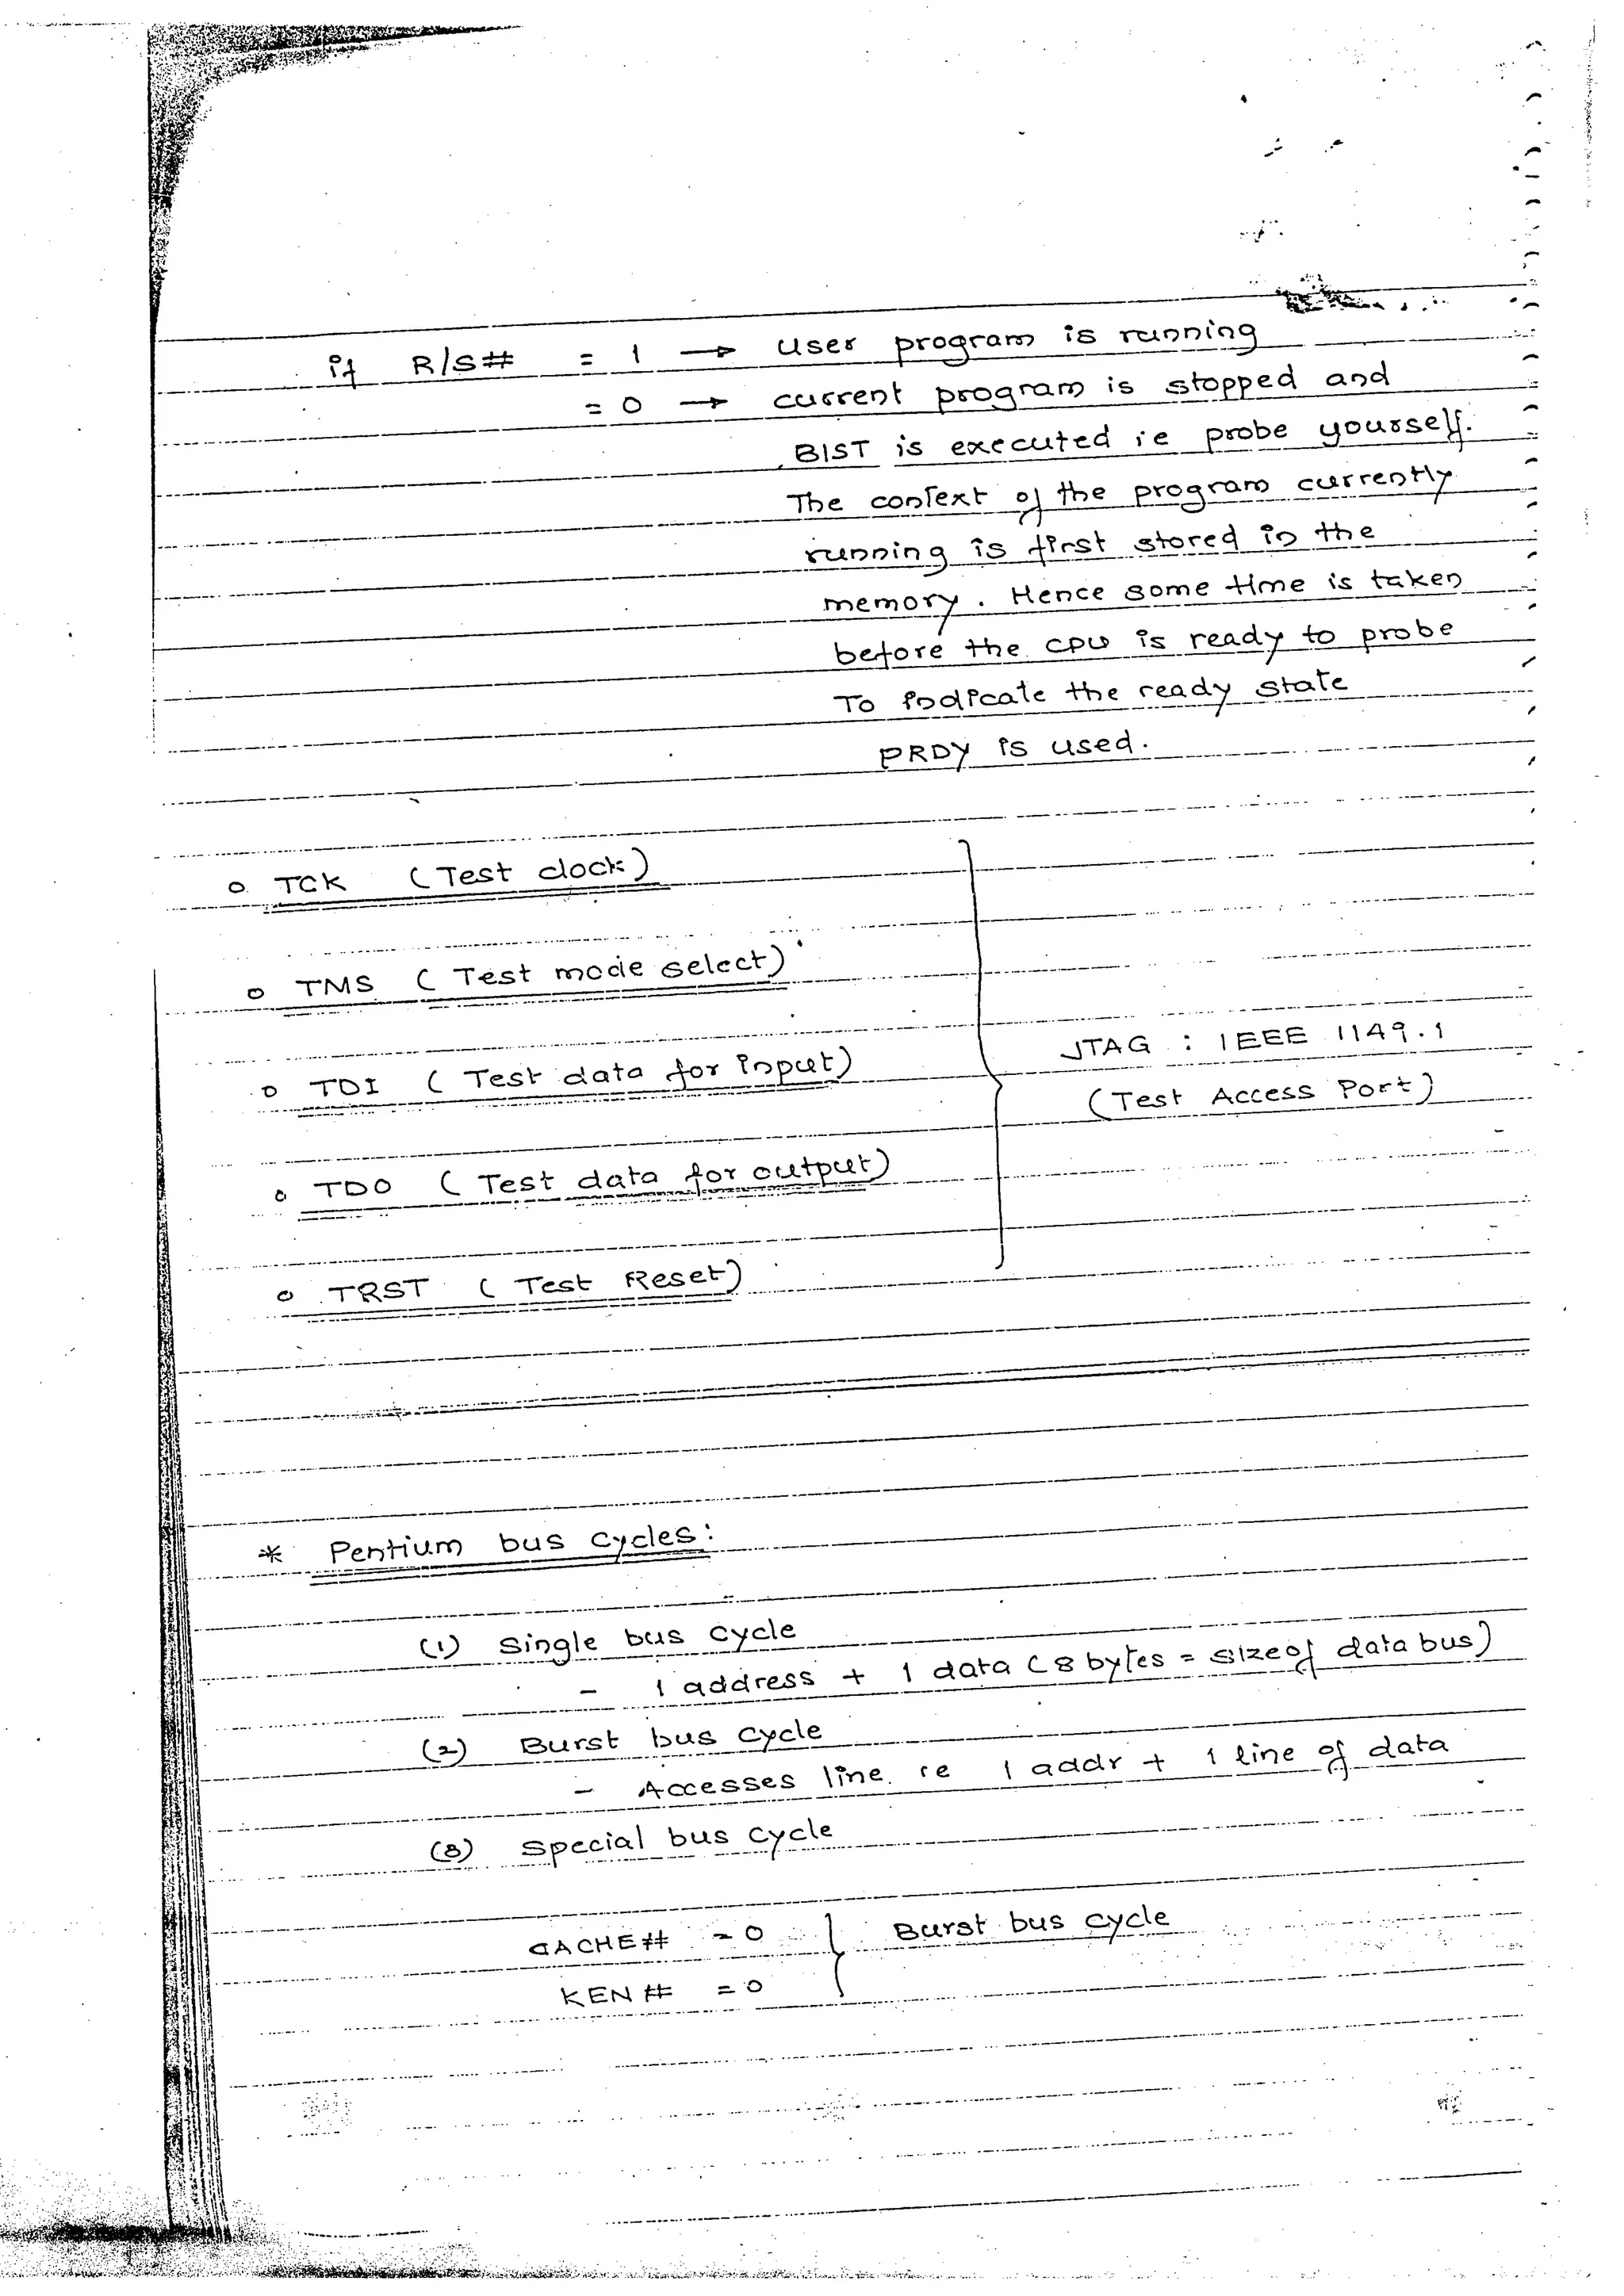 if R/S# = 1 → user program is running
= 0 → current program is stopped and
BIST is executed ie probe yourself.
The context of the program currently
running is first stored in the
memory. Hence some time is taken
before the CPU is ready to probe
To indicate the ready state
PRDY is used.
o TCK (Test clock)
o TMS (Test mode select)
o TDI (Test data for input)
JTAG : IEEE 1149.1
(Test Access Port)
o TDO (Test data for output)
o TRST (Test Reset)
* Pentium bus cycles:
(1) Single bus cycle
- 1 address + 1 data (8 bytes = size of data bus)
(2) Burst bus cycle
- Accesses line. ie 1 addr + 1 line of data
(3) Special bus cycle
CACHE# = 0 } Burst bus cycle
KEN# = 0